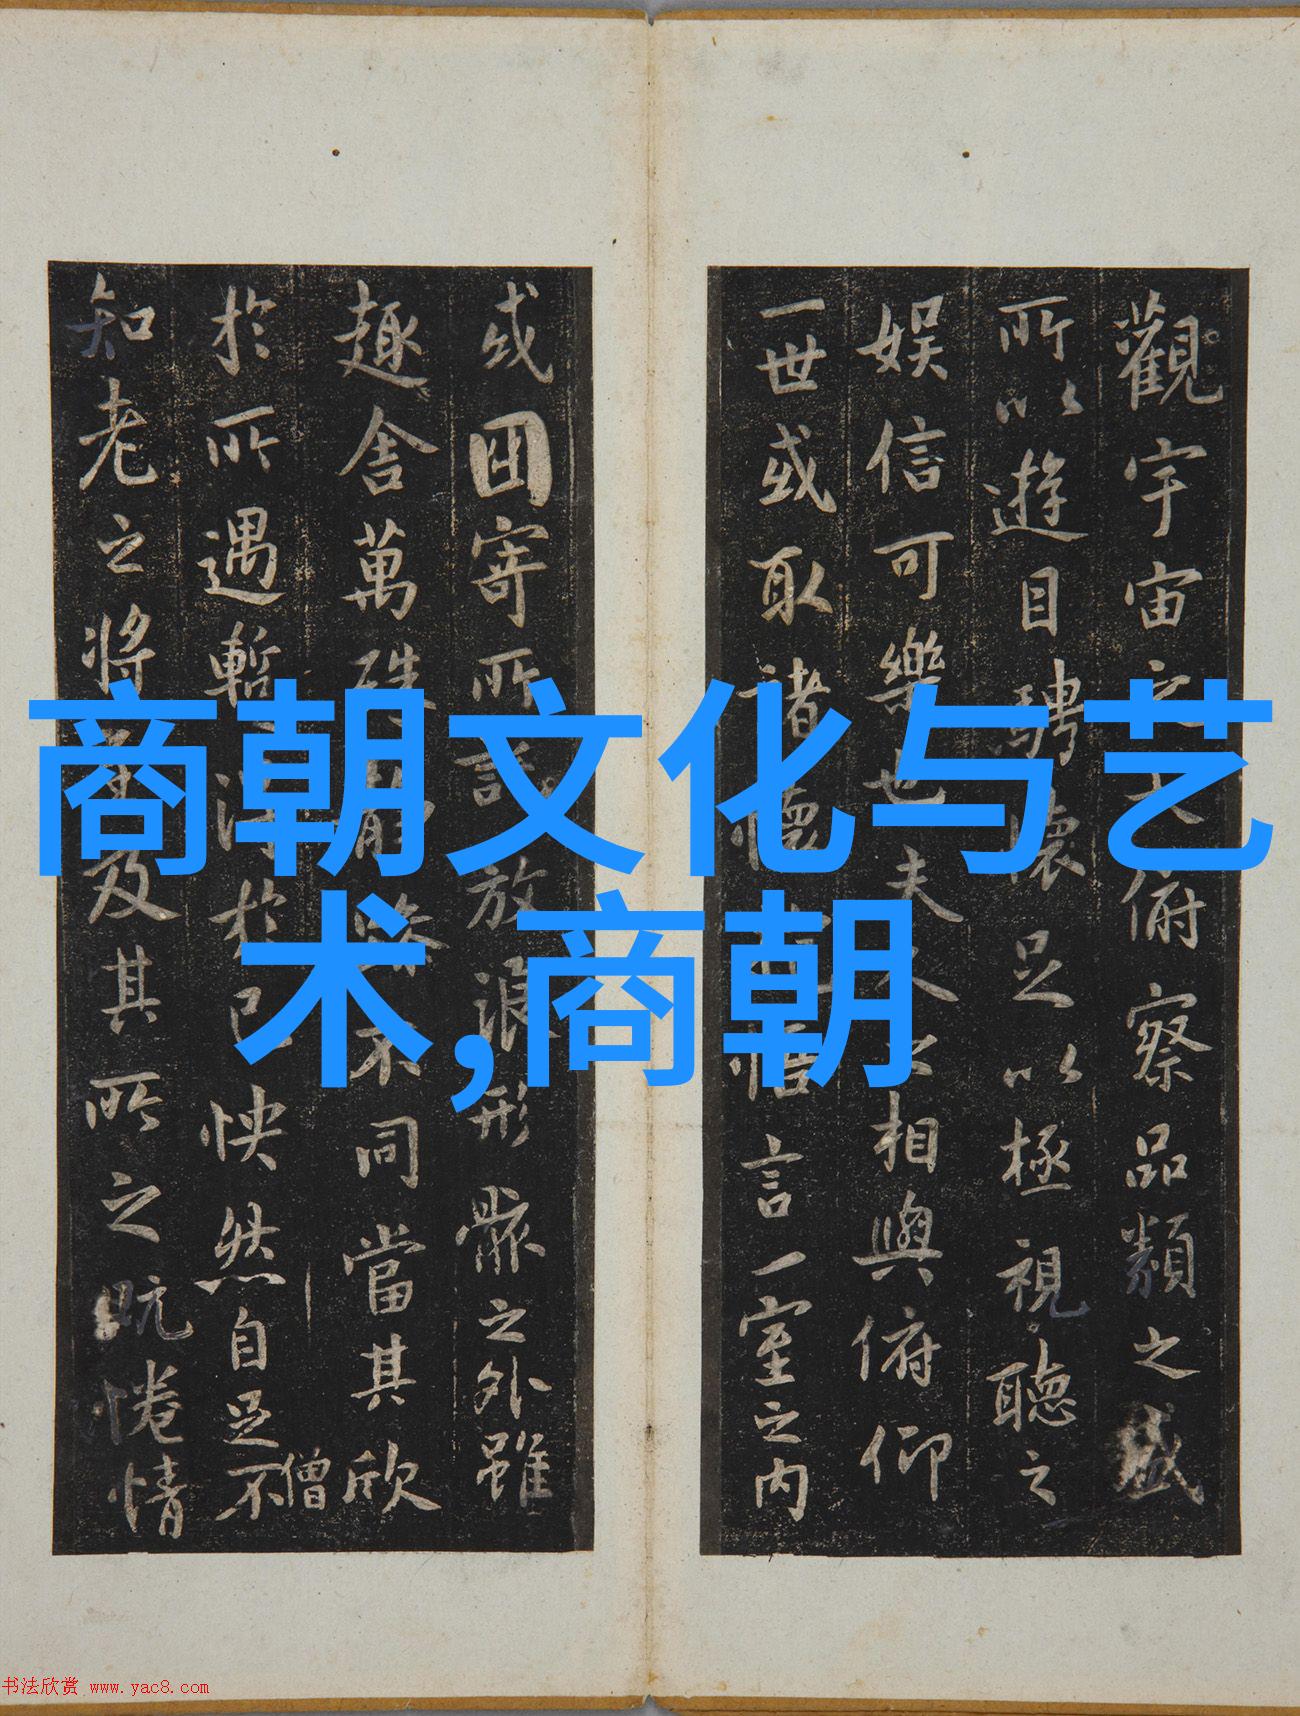 商朝文化与艺
术,商朝
觀宇宙之大俯察品類之盛
所以遊目騁懷足以極視聽之
娛信可樂也夫人之相與俯仰
一世或取諸懷抱悟言一室之内
或因寄所託放浪形骸之外雖
趣舍萬殊靜躁不同當其欣
僧
於所遇暫得於己怏然自足不
知老之將至及其所之既惓情
书法欣赏 www.yac8.com